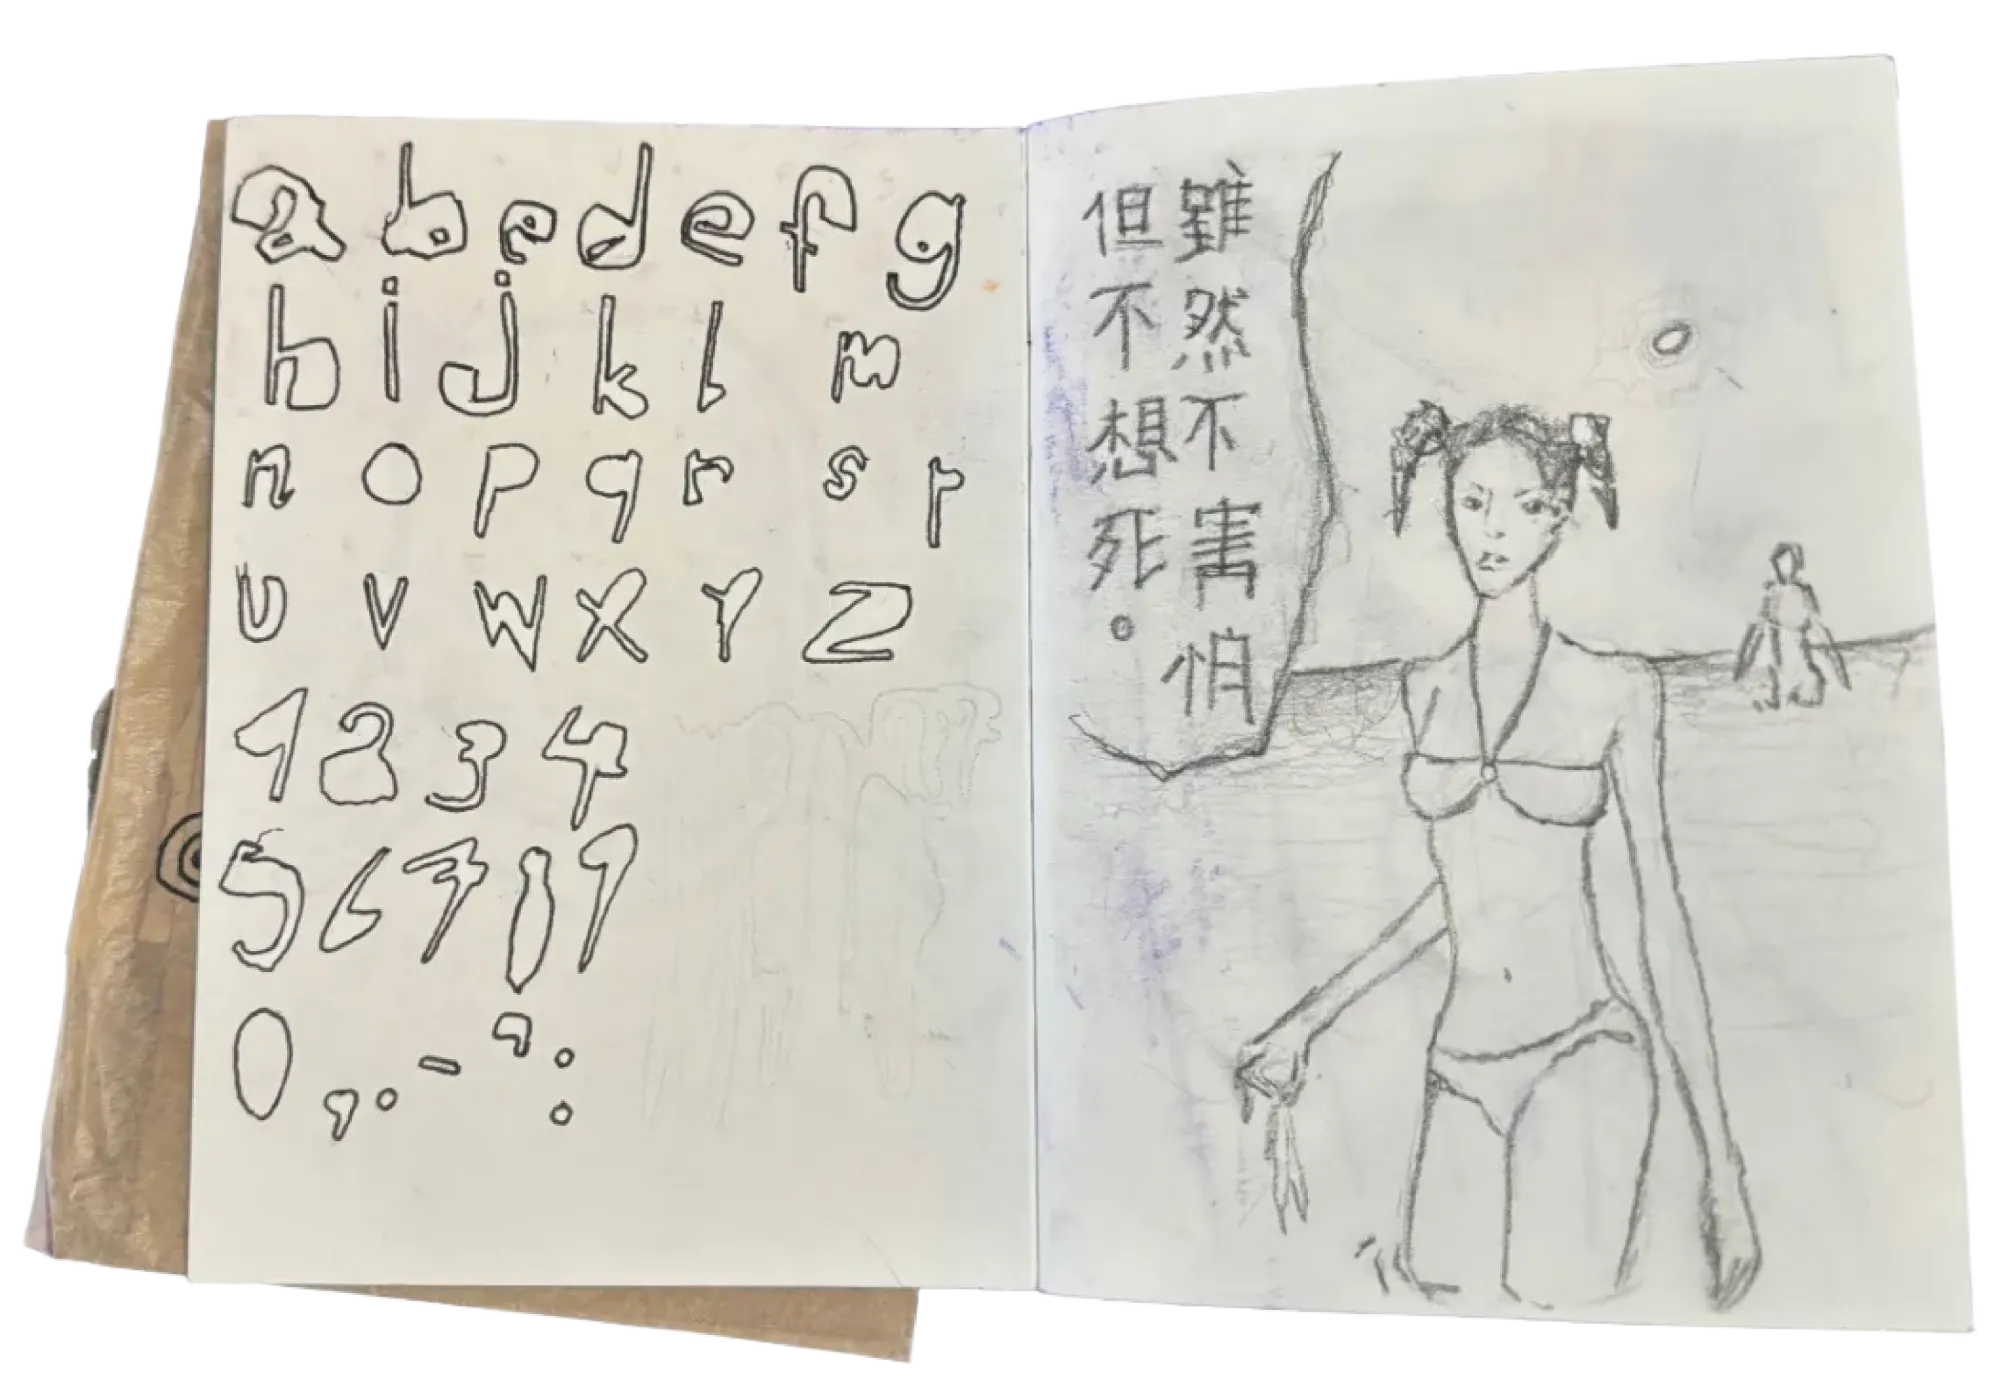 a b c d e f g
h i j k l m
n o p q r s t
u v w x y z
1 2 3 4
5 6 7 8 9
0 , . - ' :
雖然不害怕
但不想死。